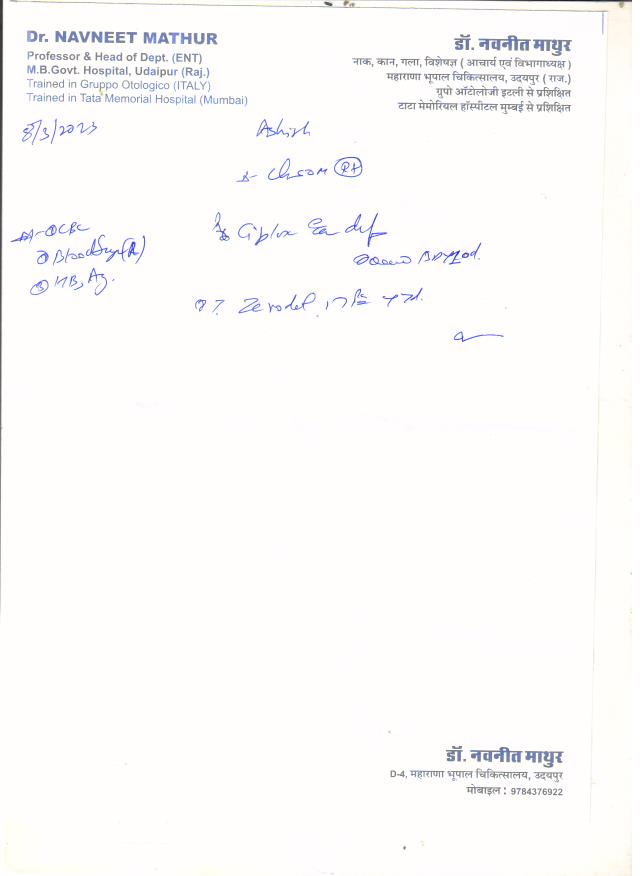 Dr. NAVNEET MATHUR
Professor & Head of Dept. (ENT)
M.B.Govt. Hospital, Udaipur (Raj.)
Trained in Gruppo Otologico (ITALY)
Trained in Tata Memorial Hospital (Mumbai)
डॉ. नवनीत माथुर
नाक, कान, गला, विशेषज्ञ ( आचार्य एवं विभागाध्यक्ष )
महाराणा भूपाल चिकित्सालय, उदयपुर ( राज.)
ग्रुपो ऑटोलोजी इटली से प्रशिक्षित
टाटा मेमोरियल हॉस्पीटल मुम्बई से प्रशिक्षित
8/3/2023
Ashish
CSOM
CBC
Blood Sugar (R)
Ciplox Ear
Zerodol
डॉ. नवनीत माथुर
D-4, महाराणा भूपाल चिकित्सालय, उदयपुर
मोबाइल : 9784376922